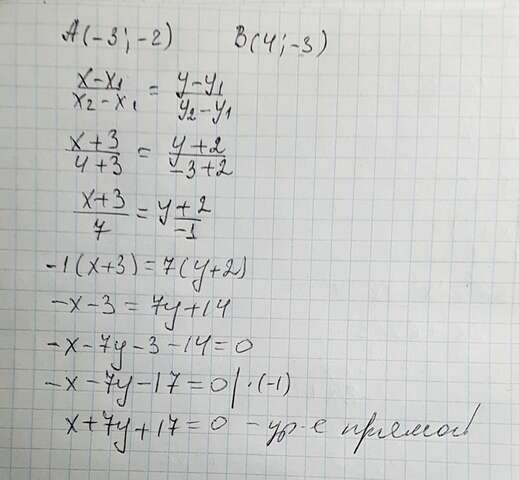 A(-3;-2) B(4;-3)
(x-x₁)/(x₂-x₁) = (y-y₁)/(y₂-y₁)
(x+3)/(4+3) = (y+2)/(-3+2)
(x+3)/7 = (y+2)/-1
-1(x+3)=7(y+2)
-x-3=7y+14
-x-7y-3-14=0
-x-7y-17=0 |·(-1)
x+7y+17=0 - ур-е прямой